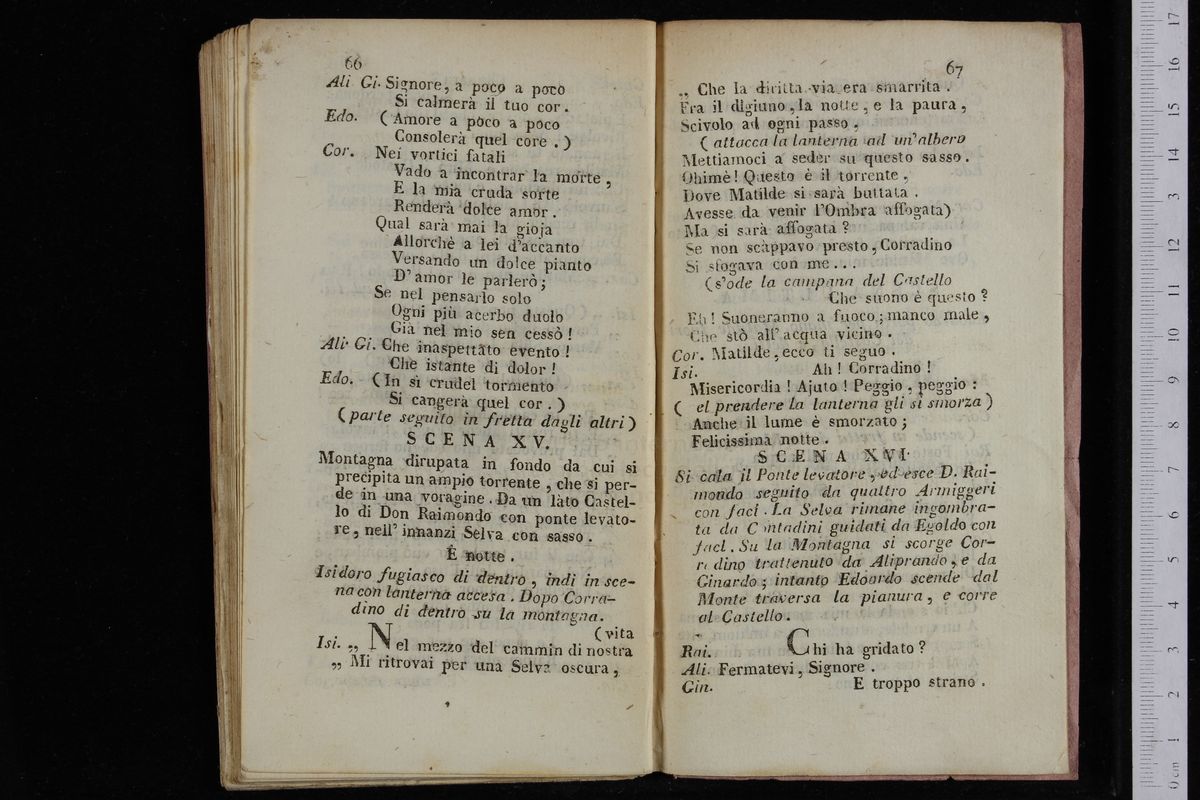 66
Ali Gi. Signore, a poco a poco
Si calmerà il tuo cor.
Edo. (Amore a poco a poco
Consolerà quel core.)
Cor. Nei vortici fatali
Vado a incontrar la morte,
E la mia cruda sorte
Renderà dolce amor.
Qual sarà mai la gioja
Allorchè a lei d'accanto
Versando un dolce pianto
D'amor le parlerò;
Se nel pensarlo solo
Ogni più acerbo duolo
Già nel mio sen cessò!
Ali Gi. Che inaspettato evento!
Che istante di dolor!
Edo. (In sì crudel tormento
Si cangerà quel cor.)
(parte seguito in fretta dagli altri)
SCENA XV.
Montagna dirupata in fondo da cui si
precipita un ampio torrente, che si per-
de in una voragine. Da un lato Castel-
lo di Don Raimondo con ponte levato-
re, nell' innanzi Selva con sasso.
È notte.
Isidoro fugiasco di dentro, indi in sce-
na con lanterna accesa. Dopo Corra-
dino di dentro su la montagna.
(vita
Isi. „ Nel mezzo del cammin di nostra
„ Mi ritrovai per una Selva oscura,
67
„ Che la diritta via era smarrita.
Fra il digiuno, la notte, e la paura,
Scivolo ad ogni passo.
(attacca la lanterna ad un'albero
Mettiamoci a seder su questo sasso.
Ohimè! Questo è il torrente,
Dove Matilde si sarà buttata.
Avesse da venir l'Ombra affogata)
Ma si sarà affogata?
Se non scappavo presto, Corradino
Si sfogava con me...
(s'ode la campana del Castello
Che suono è questo?
Eh! Suoneranno a fuoco; manco male,
Che stò all' acqua vicino.
Cor. Matilde, ecco ti seguo.
Isi. Ah! Corradino!
Misericordia! Ajuto! Peggio, peggio:
( el prendere la lanterna gli si smorza)
Anche il lume è smorzato;
Felicissima notte.
SCENA XVI.
Si cala il Ponte levatore, ed esce D. Rai-
mondo seguito da quattro Armiggeri
con faci. La Selva rimane ingombra-
ta da Contadini guidati da Egoldo con
faci. Su la Montagna si scorge Cor-
radino trattenuto da Aliprando, e da
Ginardo; intanto Edoardo scende dal
Monte traversa la pianura, e corre
al Castello.
Rai. Chi ha gridato?
Ali. Fermatevi, Signore.
Gin. E troppo strano.